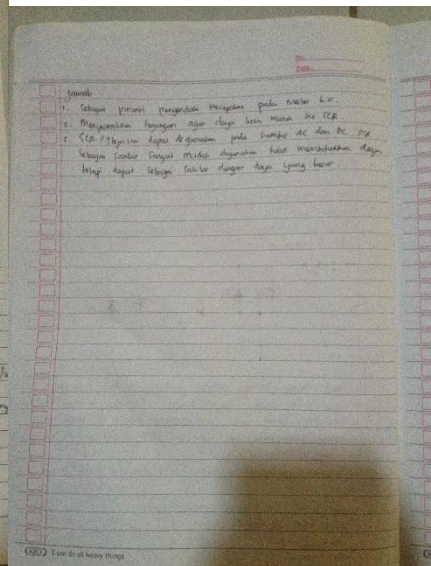 No.
Date.
Jawab
1. Sebagai piranti pengendali kecepatan pada motor
2. tegangan agar daya bisa masuk ke SCR
3. SCR / Thyristor dapat digunakan pada sumber AC dan DC. SCR
Sebagai Saklar Sangat mudah digunakan membutuhkan daya
tetapi dapat Sebagai Saklar dengan daya yang besar.
I can do all heavy things